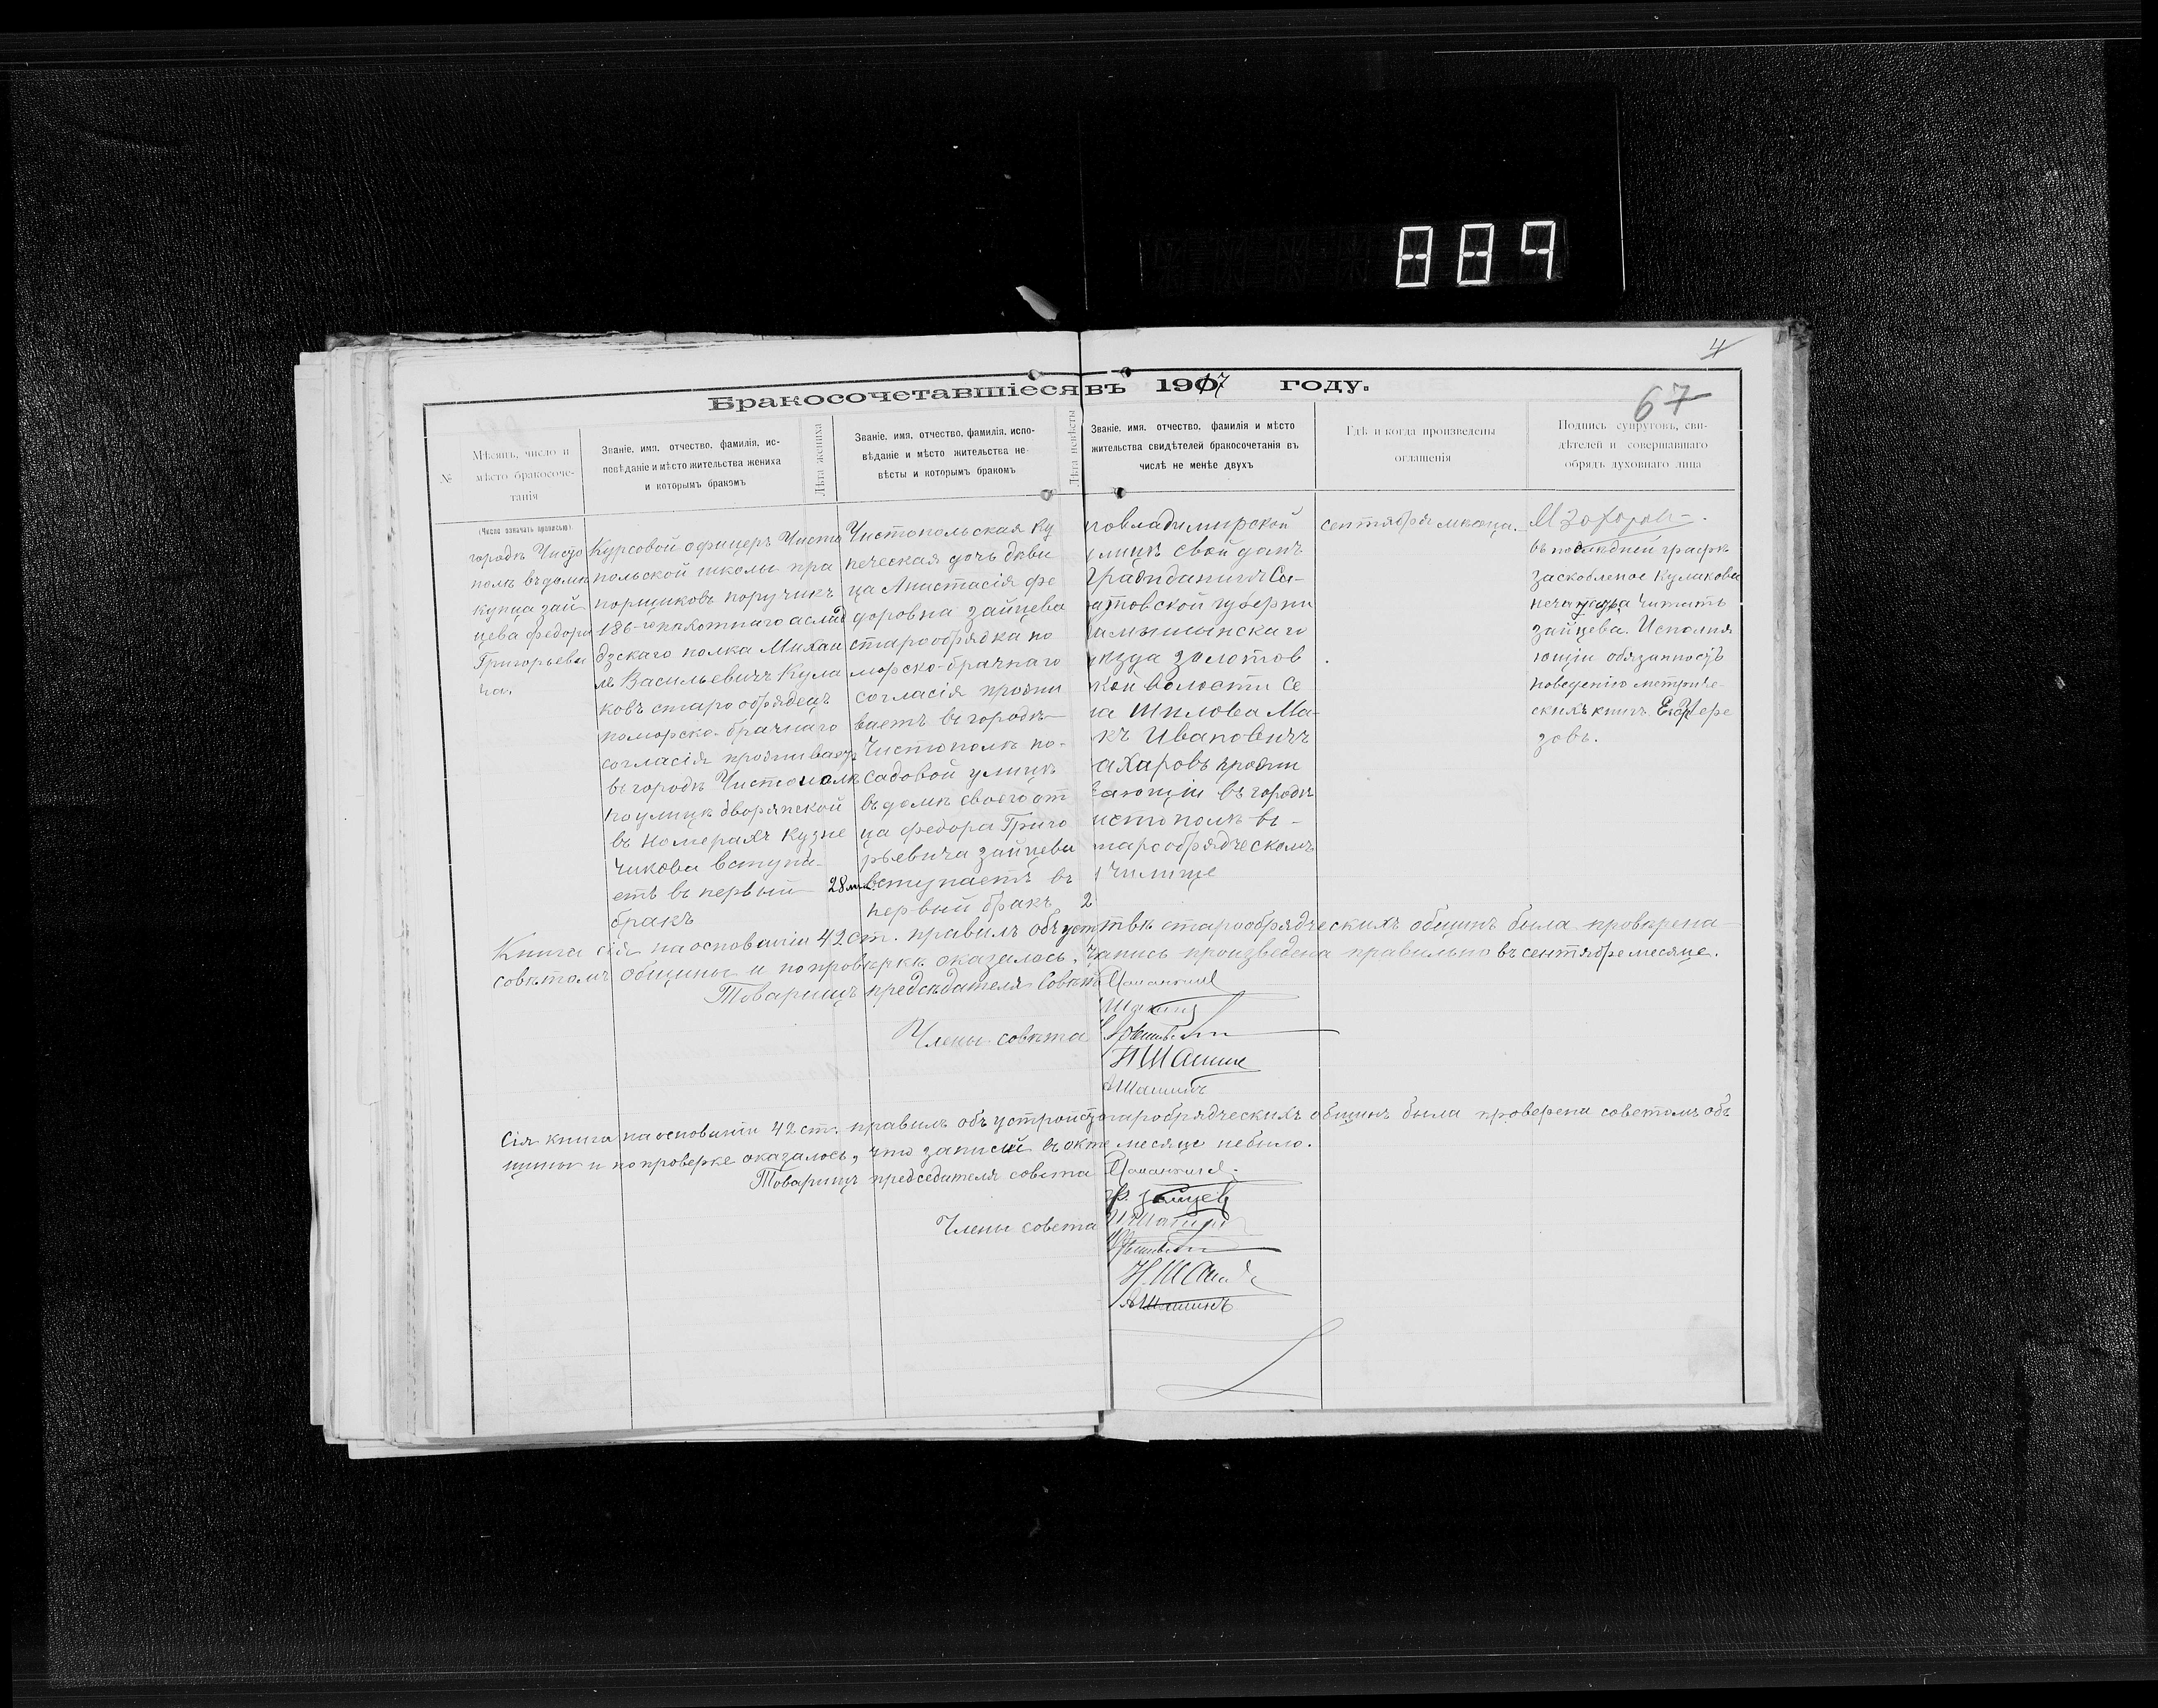 889
4
67
Бракосочетавшіеся въ 1917 году.
№
Мѣсяцъ, число и
мѣсто бракосоче-
танія
Званіе, имя, отчество, фамилія, ис-
повѣданіе и мѣсто жительства жениха
и которымъ бракомъ
Лѣта жениха
Званіе, имя, отчество, фамилія, испо-
вѣданіе и мѣсто жительства не-
вѣсты и которымъ бракомъ
Лѣта невѣсты
Званіе, имя, отчество, фамилія и мѣсто
жительства свидѣтелей бракосочетанія въ
числѣ не менѣе двухъ
Гдѣ и когда произведены
оглашенія
Подпись супруговъ, сви-
дѣтелей и совершавшаго
обрядъ духовнаго лица
(Число означать прописью).
городѣ Чисто
полѣ въ домѣ
купца Зай
цева Федора
Григорьеви
ча.
Курсовой офицеръ Чисто
польской школы пра
порщиковъ поручикъ
186-го пѣхотнаго аслан
дзскаго полка Михаи
лъ Васильевичъ Кула
ковъ старообрядецъ
поморско-брачнаго
согласія проживаетъ
въ городѣ Чистополѣ
по улицѣ дворянской
въ номерахъ Кузне
чикова вступа-
етъ въ первый
бракъ
28
Чистопольская ку
печеская дочь дѣви
ца Анастасія Фе
доровна Зайцева
старообрядка по
морско-брачнаго
согласія прожи
ваетъ въ городѣ
Чистополѣ по-
садовой улицѣ
въ домѣ своего от
ца Федора Григо
рьевича Зайцева
вступаетъ въ
первый бракъ
2
по владимирской
улицѣ свой домъ
Гражданинъ Са-
атовской губерни
амышинскаго
уѣзда Золотов
кой волости Се
ла Шилова Ма-
къ Ивановичъ
ахаровъ прожи
вающій въ городѣ
истополѣ въ-
тарообрядческомъ
училище
сентября мѣсяца.
М Захаровъ
въ последней графѣ
заскобленое Кулакова
читать
Зайцева. Исполня
ющій обязанность
поведенію метриче-
скихъ книгъ Е. Фере
зовъ.
Книга сія на основаніи 42 ст. правилъ объ уст твѣ старообрядческихъ общинъ была провѣрена
совѣтомъ общины и по провѣркѣ оказалось, запись произведена правильно въ сентябре месяце.
Товарищъ предсѣдателя Совѣта
Члены совѣта
Н Шашин
АШашинъ
Сія книга на основаніи 42 ст. правилъ объ устройст старобрядческихъ общинъ была проверена советомъ об
щины и по проверке оказалось, что записей въ окт месяце небыло.
Товарищъ председателя совета
Ф. Зайцевъ
Члены совета
АШашинъ